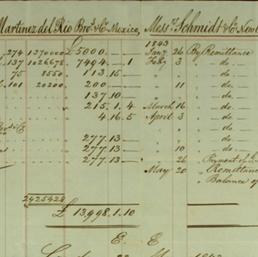 Martinez del Rio Bros. & Co. Mexico, Messrs. Schmidt & Co. New
1843
274 1370000 £5000.— Jany. 26 By Remittance
137 1026678 7494.—1 Feby. 3 — do —
75 8550 113.15 — do —
101 20200 200 11 — do —
137.10 — do —
215.1.4 March 16 — do —
4.16.5 April 3 — do —
— do —
277.13 — do —
277.13 10 — do —
277.13 26 Payment of
May 20 Remittance
Balance of
2425428
£ 13,998.1.10
E. E.